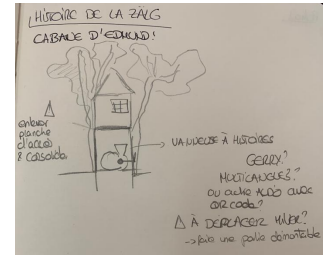 HISTOIRE DE LA ZALG
CABANE D'EDMOND!
△ enlever
planche
d'accès
& consolider
→ VANNEUSE À HISTOIRES
GERRY?
MULTICANGUES?
OU autre AUDIO avec
QR code?
△ À DEPLACER HIVER?
→ faire une partie démontable